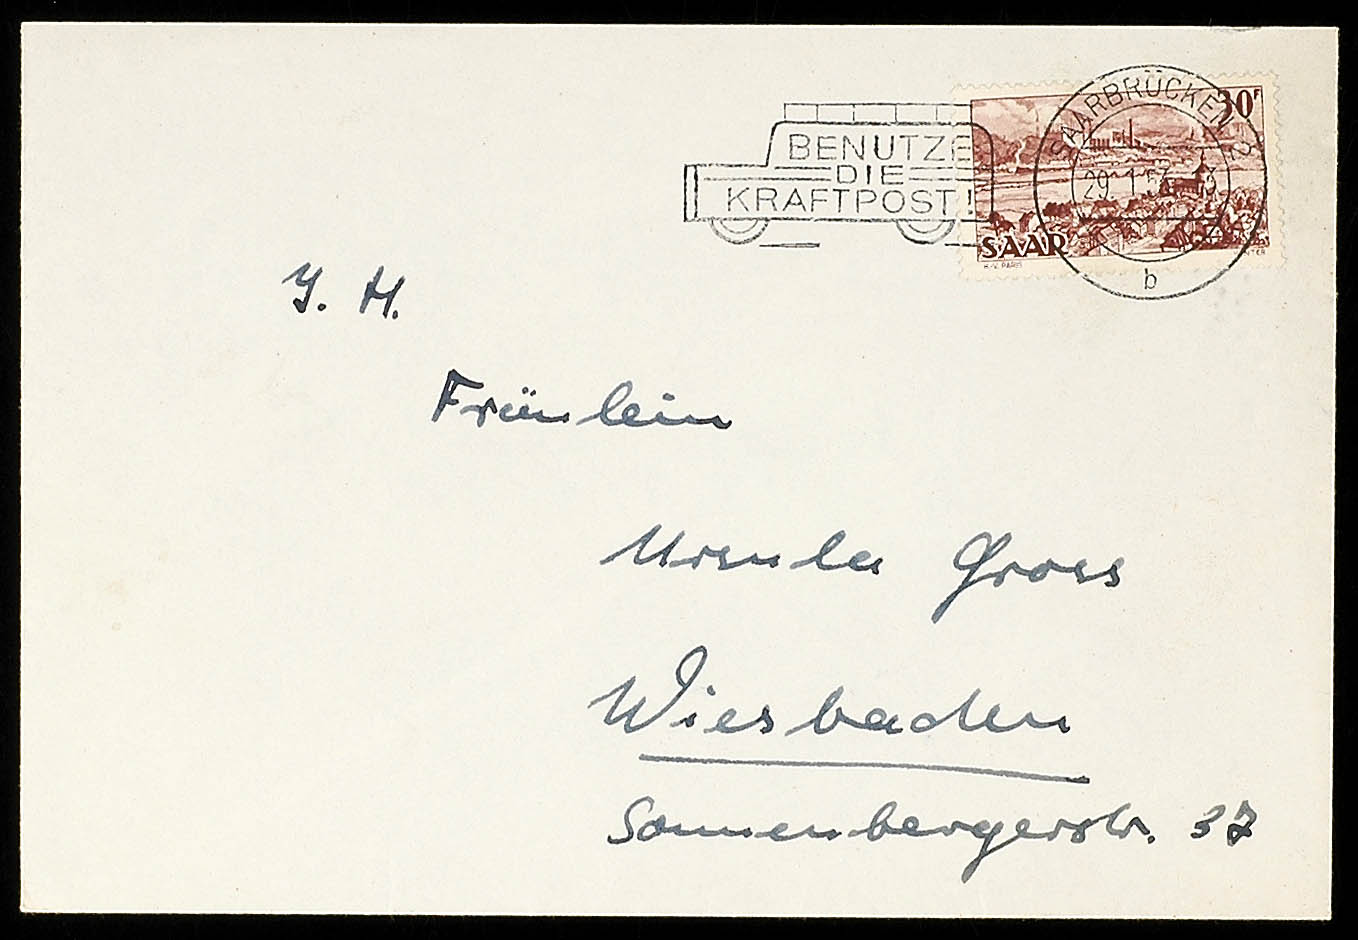 BENUTZE
DIE
KRAFTPOST!
SAARBRÜCKEN 2
30F
29. 1. 53
SAAR
b
J. H.
Fräulein
Ursula Gross
Wiesbaden
Sonnenbergerstr. 37